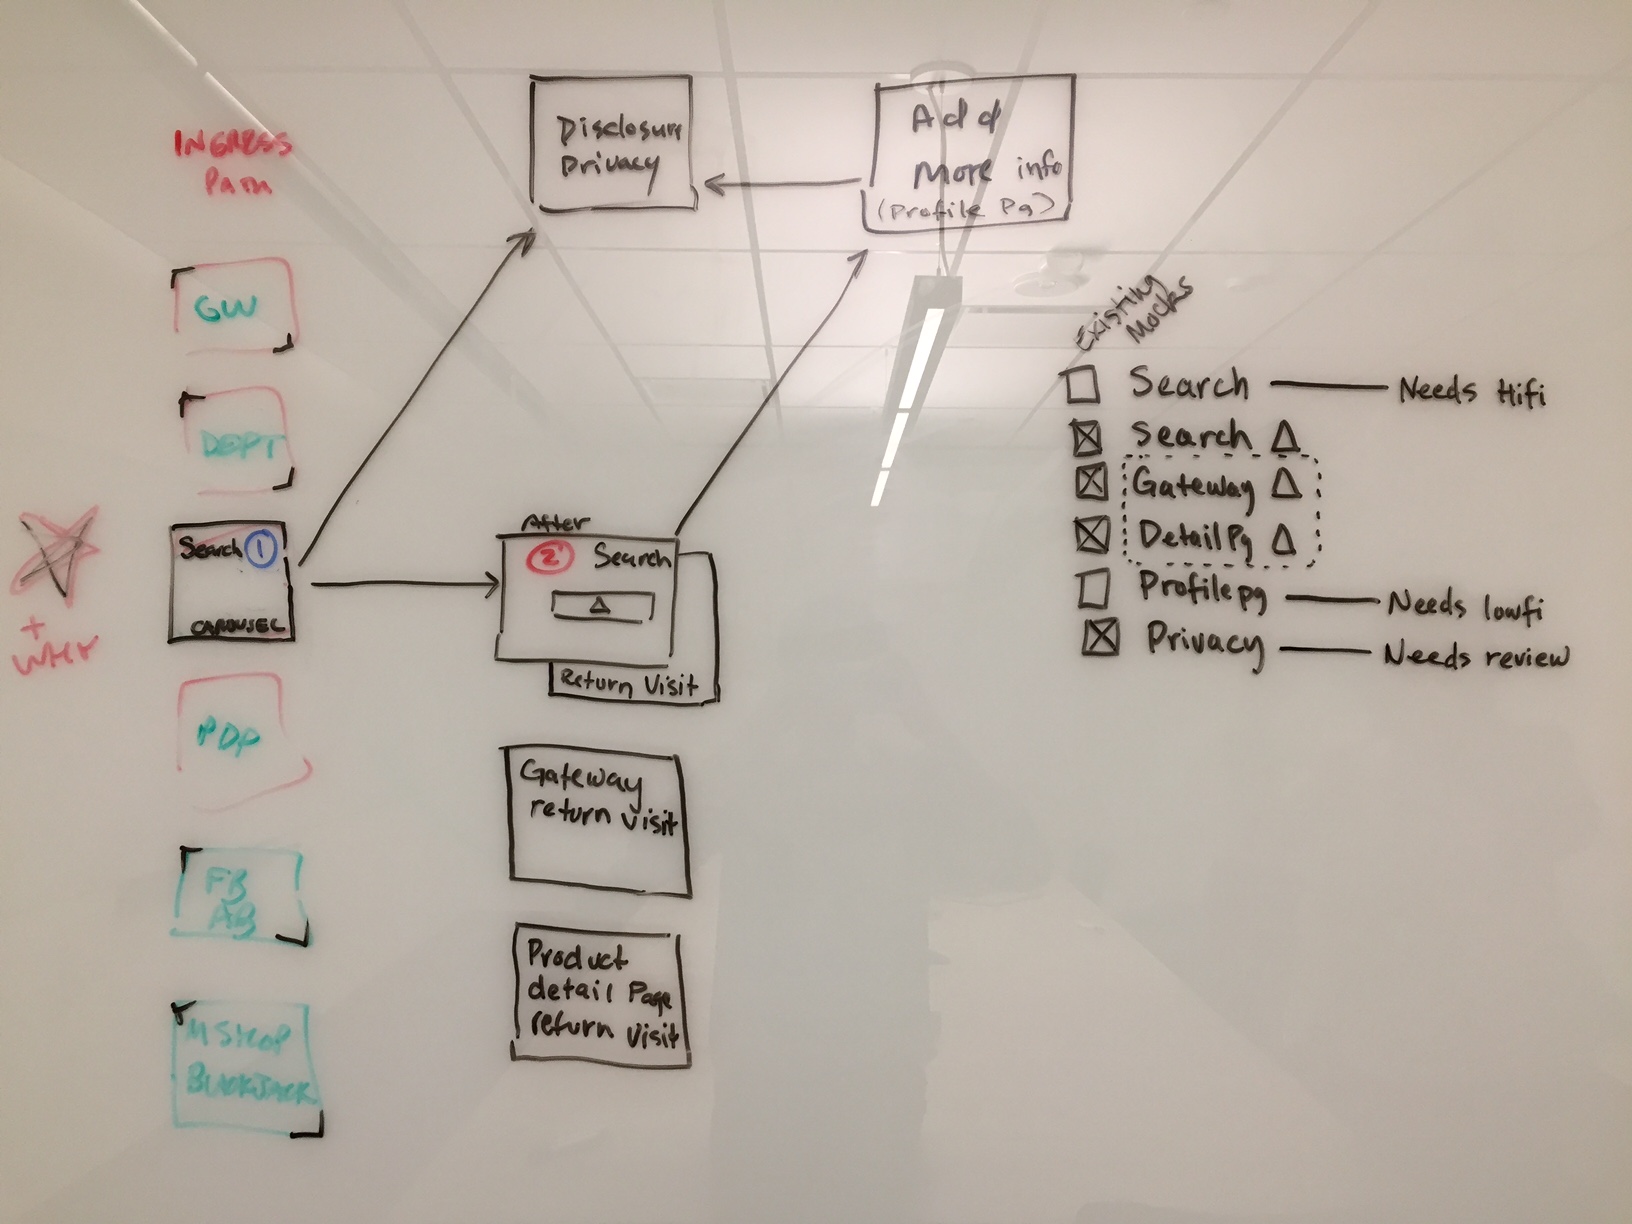 INGRESS
PATH
GW
DEPT
Search 1
CAROUSEL
+
WHY
PDP
FB
AB
MSHOP
BLACKJACK
Disclosure
Privacy
Add
More info
(Profile Pg)
After
2 Search
Δ
Return Visit
Gateway
return visit
Product
detail Page
return visit
Existing
Mocks
Search — Needs Hifi
Search Δ
Gateway Δ
Detail Pg Δ
Profile pg — Needs lowfi
Privacy — Needs review